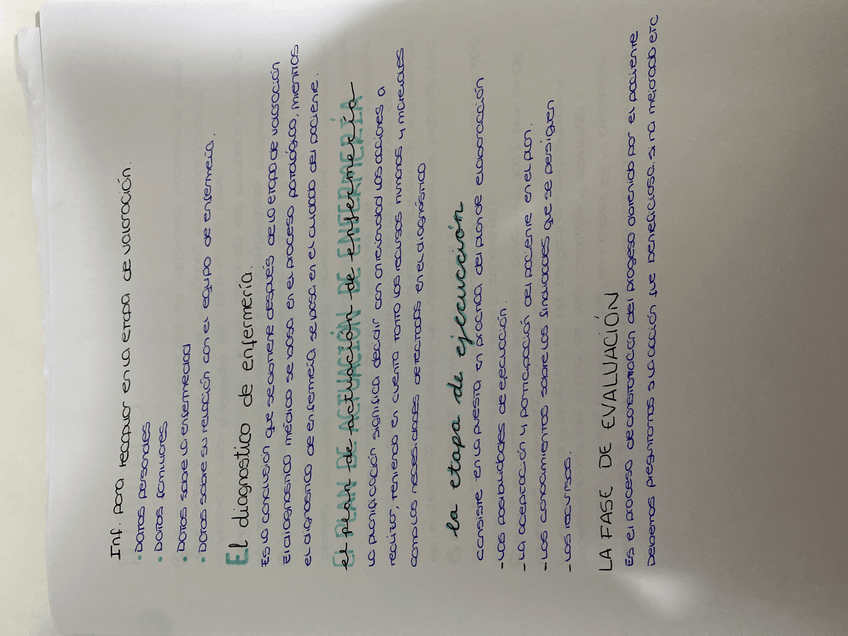 Inf. para recopilar en la etapa de valoración.
· Datos personales
· Datos familiares
· Datos sobre la enfermedad
· Datos sobre su relación con el equipo de enfermería.
El diagnostico de enfermería.
Es la conclusión que se obtiene después de la etapa de valoración
El diagnostico médico se basa en el proceso patológico, mientras
el dignostico de enfermería se basa en el cuidado del paciente.
EL PLAN DE ACTUACIÓN DE ENFERMERÍA
el plan de actuación de enfermería
La planificación significa decidir con anterioridad las acciones a
realizar, teniendo en cuenta tanto los recursos humanos y materiales
como las necesidades detectadas en el diagnóstico
la etapa de ejecucción
consiste en la puesta en practica del plan de elaboracción
- Las posibilidades de ejecucción.
- La aceptación y participación del paciente en el plan.
- Los conocimientos sobre las finalidades que se persiguen
- Los recursos.
LA FASE DE EVALUACIÓN
Es el proceso de constatación del progreso obtenido por el paciente
Debemos preguntarnos si la acción fue beneficiosa, si ha mejorado etc